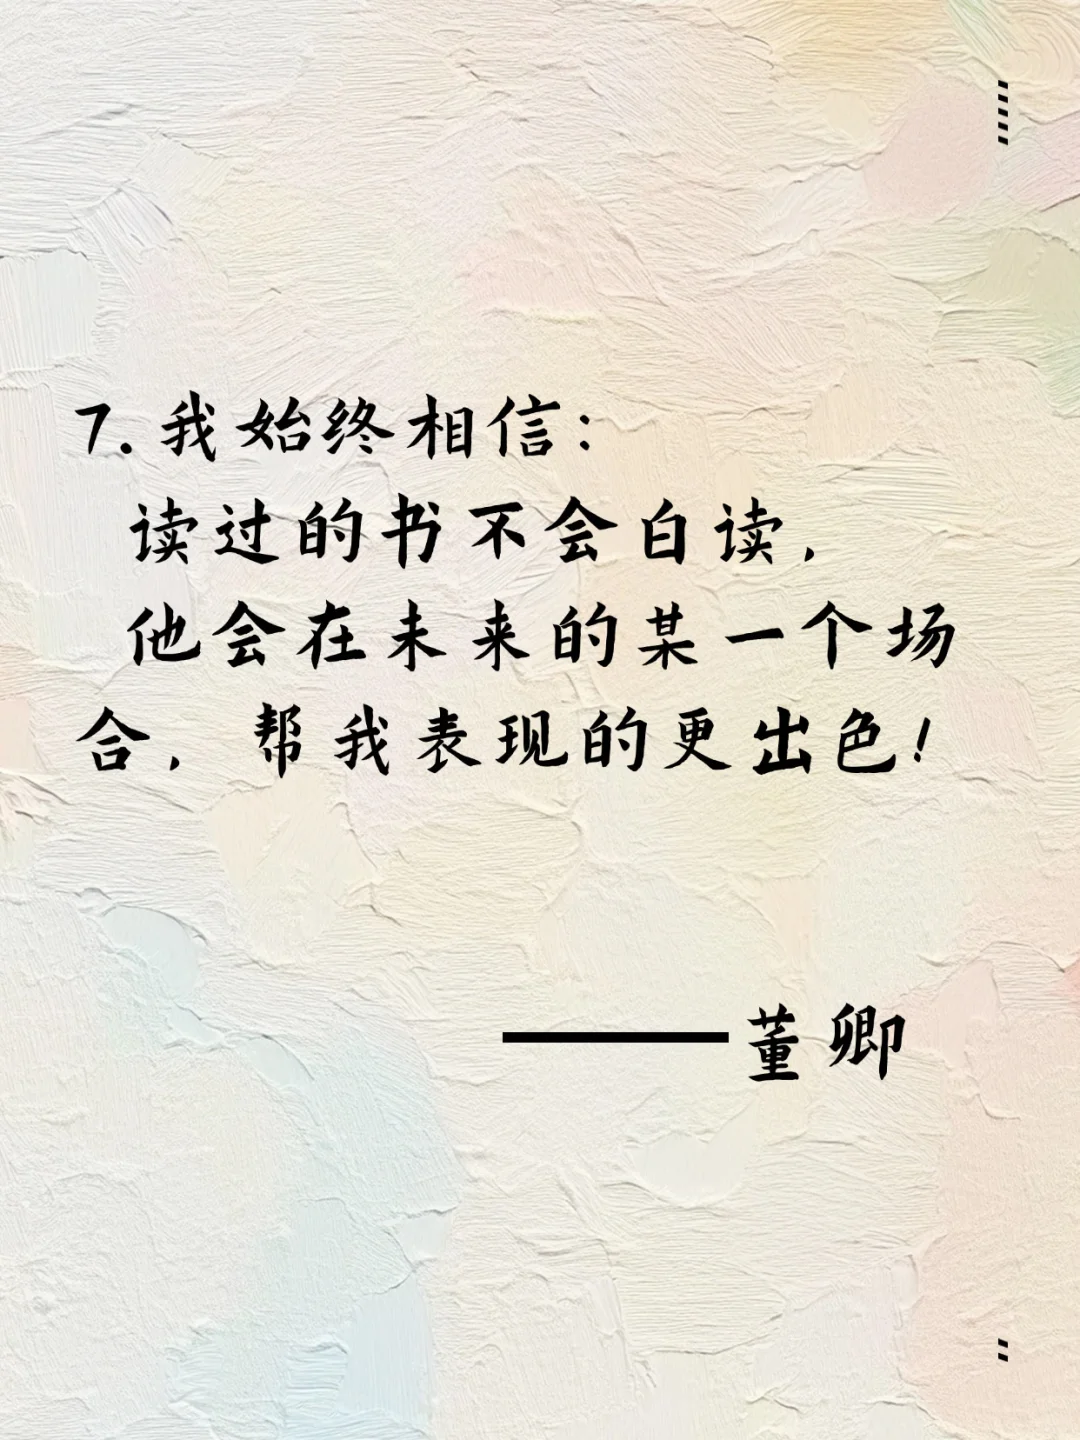 7.我始终相信:
读过的书不会白读,
他会在未来的某一个场
合,帮我表现的更出色!
———董卿